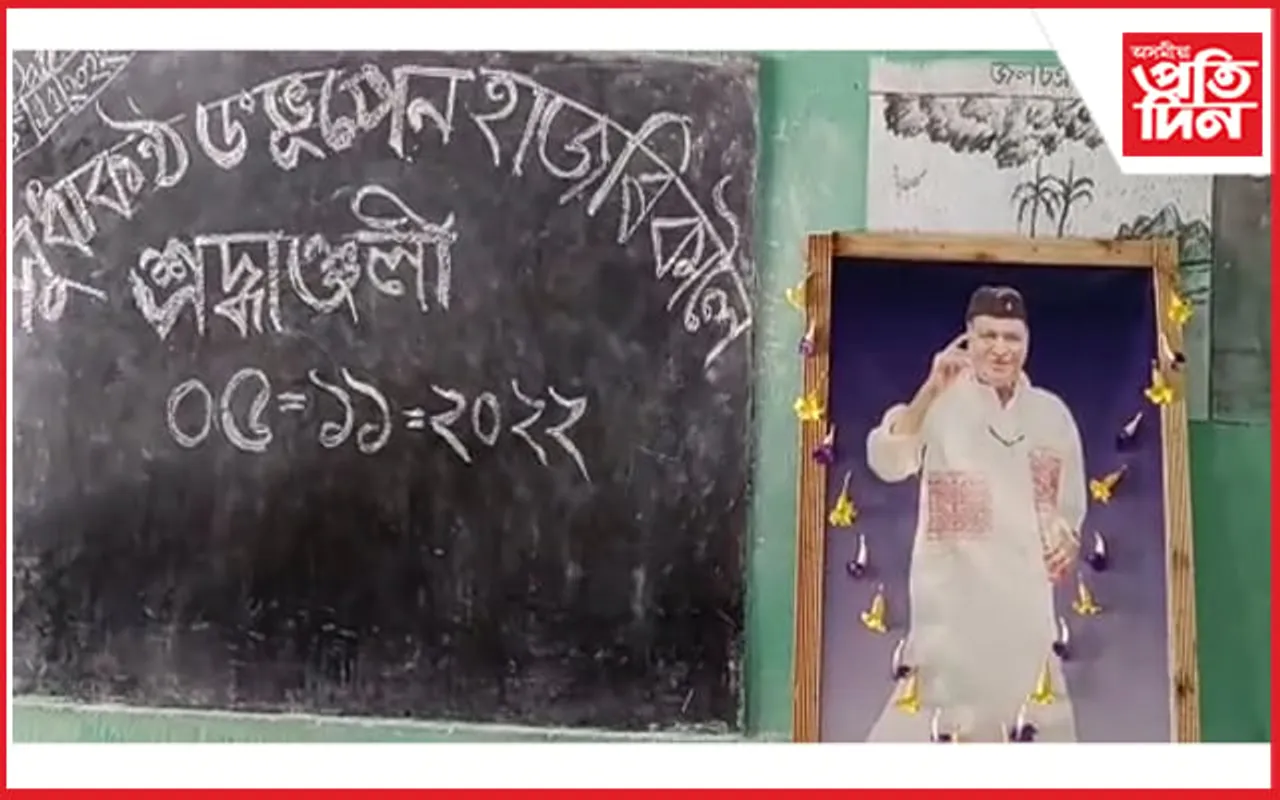 সুধাকণ্ঠ ড° ভূপেন হাজৰিকালৈ
শ্ৰদ্ধাঞ্জলী
০৫=১১=২০২২
অসমীয়া
প্ৰতি
দিন